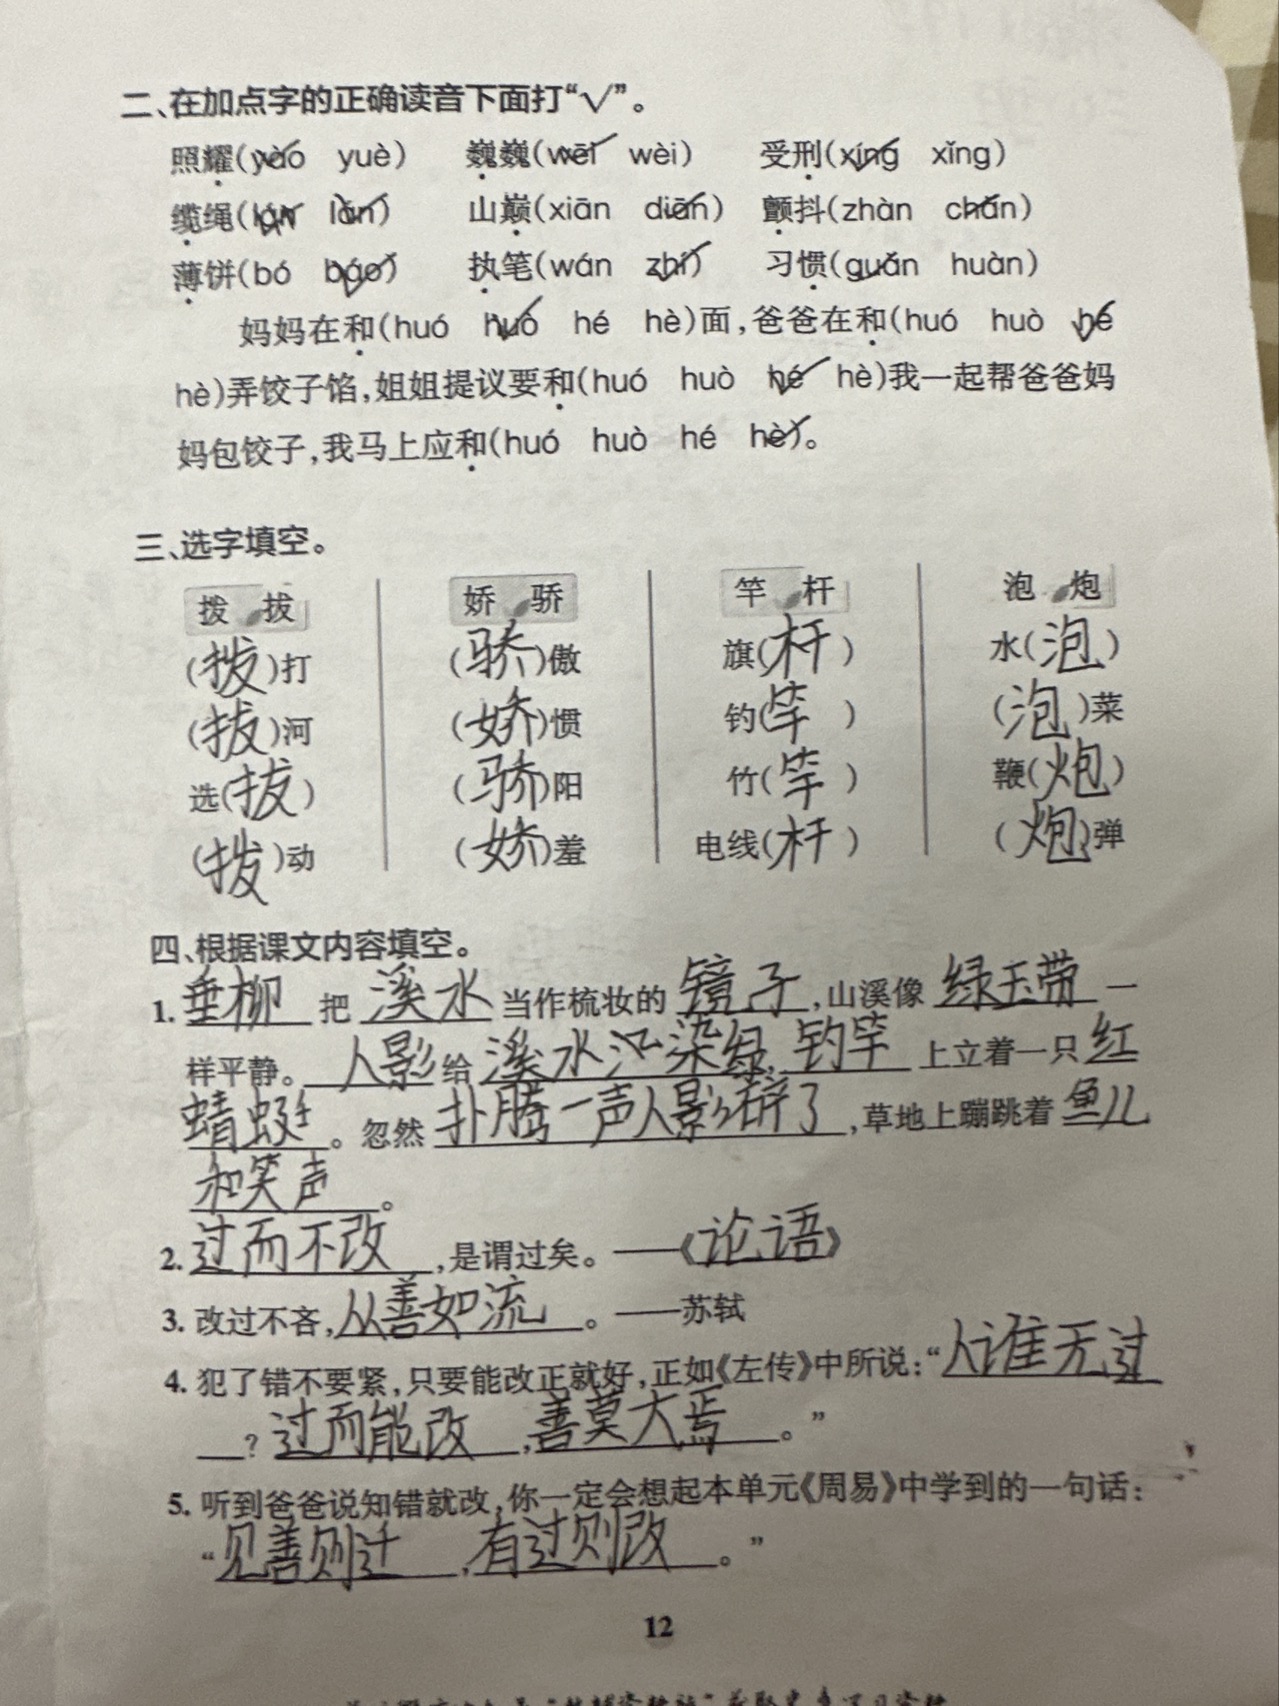 二、在加点字的正确读音下面打“√”。
照耀(yào yuè) 巍巍(wēi wèi) 受刑(xíng xǐng)
缆绳(lán lǎn) 山巅(xiān diān) 颤抖(zhàn chǎn)
薄饼(bó báo) 执笔(wán zhí) 习惯(guǎn huàn)
妈妈在和(huó huò hé hè)面,爸爸在和(huó huò hé
hè)弄饺子馅,姐姐提议要和(huó huò hé hè)我一起帮爸爸妈
妈包饺子,我马上应和(huó huò hé hè)。
三、选字填空。
拨 拔 娇 骄 竿 杆 泡 炮
(拨)打 (骄)傲 旗(杆) 水(泡)
(拔)河 (娇)惯 钓(竿) (泡)菜
选(拔) (骄)阳 竹(竿) 鞭(炮)
(拨)动 (娇)羞 电线(杆) (炮)弹
四、根据课文内容填空。
1. 垂柳 把 溪水 当作梳妆的 镜子,山溪像 绿玉带 一
样平静。 人影 给 溪水 染绿, 钓竿 上立着一只 红
蜻蜓。忽然 扑腾一声人影碎了,草地上蹦跳着 鱼儿
和笑声。
2. 过而不改,是谓过矣。——《论语》
3. 改过不吝,从善如流。——苏轼
4. 犯了错不要紧,只要能改正就好,正如《左传》中所说:“人谁无过
?过而能改,善莫大焉。”
5. 听到爸爸说知错就改,你一定会想起本单元《周易》中学到的一句话:
“见善则迁,有过则改。”
12